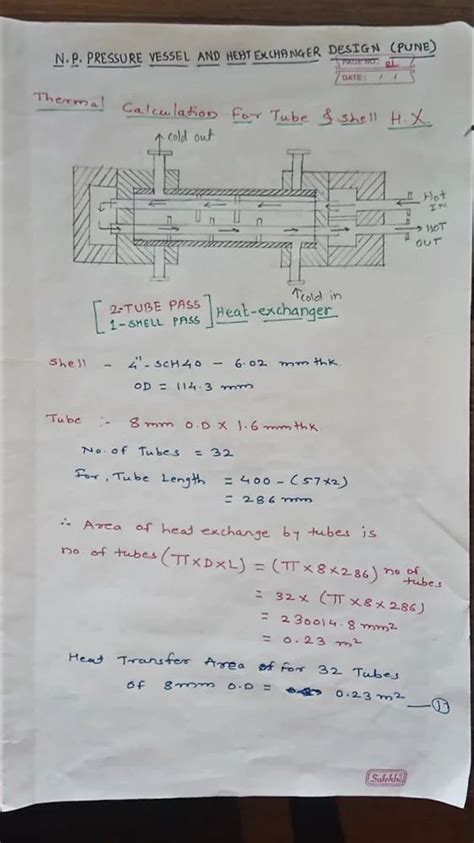 N.P. PRESSURE VESSEL AND HEAT EXCHANGER DESIGN (PUNE)
PAGE NO.
DATE: / /
Thermal Calculation For Tube & Shell H.X.
cold out
Hot IN
HOT OUT
cold in
[2-TUBE PASS
1-SHELL PASS] Heat-exchanger
Shell - 4"-SCH40 - 6.02 mm thk.
OD = 114.3 mm
Tube :- 8mm O.D X 1.6mm thk.
No. of Tubes = 32
For, Tube Length = 400 - (57X2)
= 286 mm
∴ Area of heat exchange by tubes is
no of tubes (π X D X L) = (π X 8 X 286) no of tubes
= 32 X (π X 8 X 286)
= 230014.8 mm²
= 0.23 m²
Heat Transfer Area of for 32 Tubes
of 8mm O.D = 0.23 m²
Sulekha